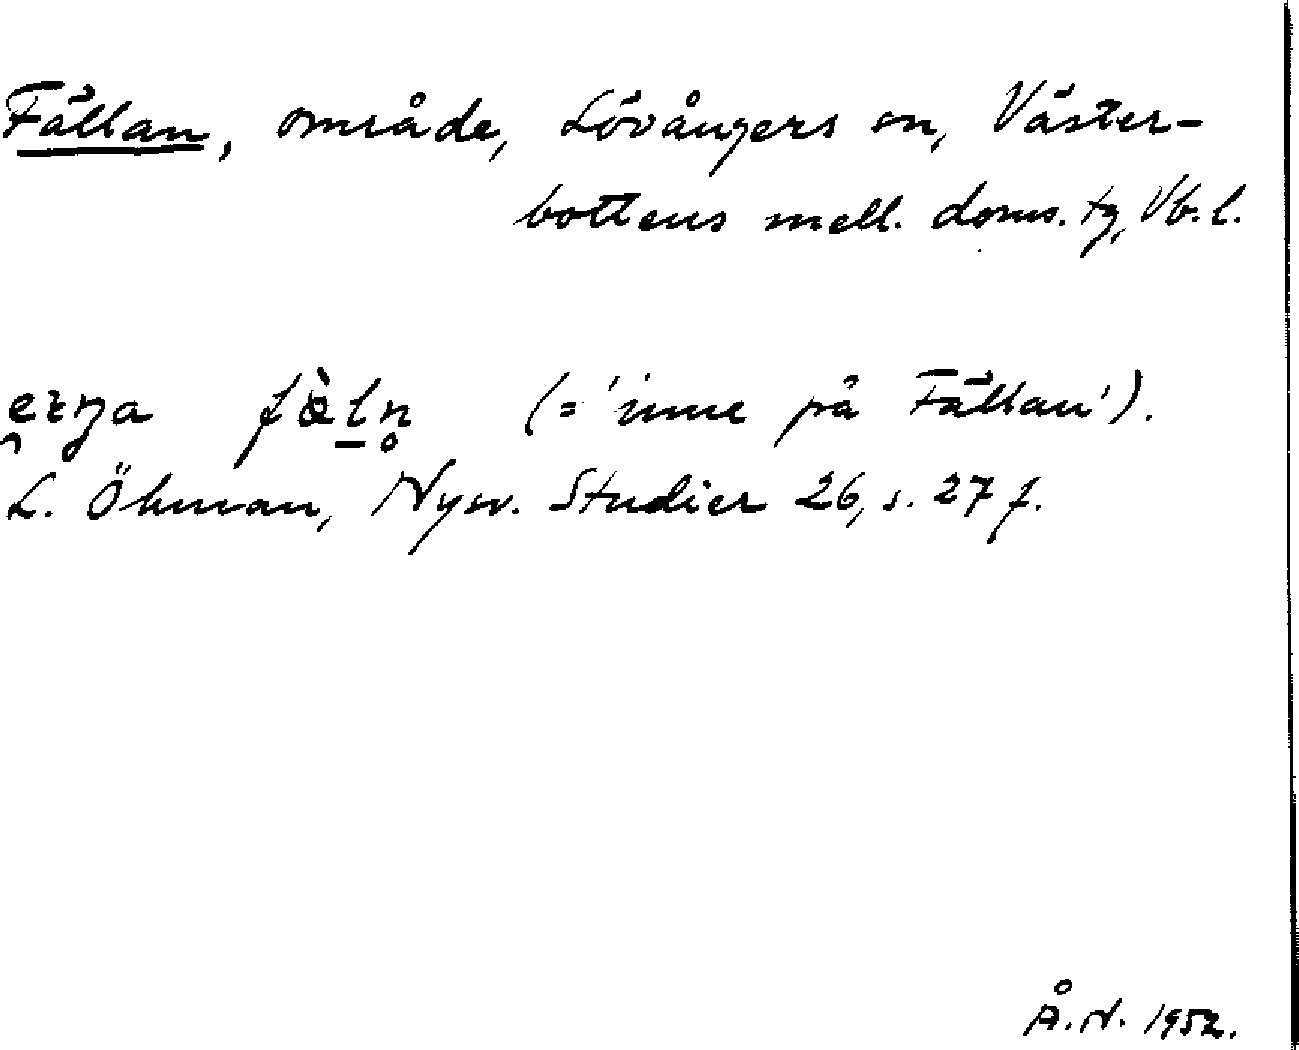 Fällan, område, Lövångers sn, Väster-
bottens mell. doms. tg, Vb. l.
fæ̀l̠n̥ (= 'inne på Fällan').
L. Öhman, Nysv. Studier 26, s. 27 f.
Å. N. 1952.